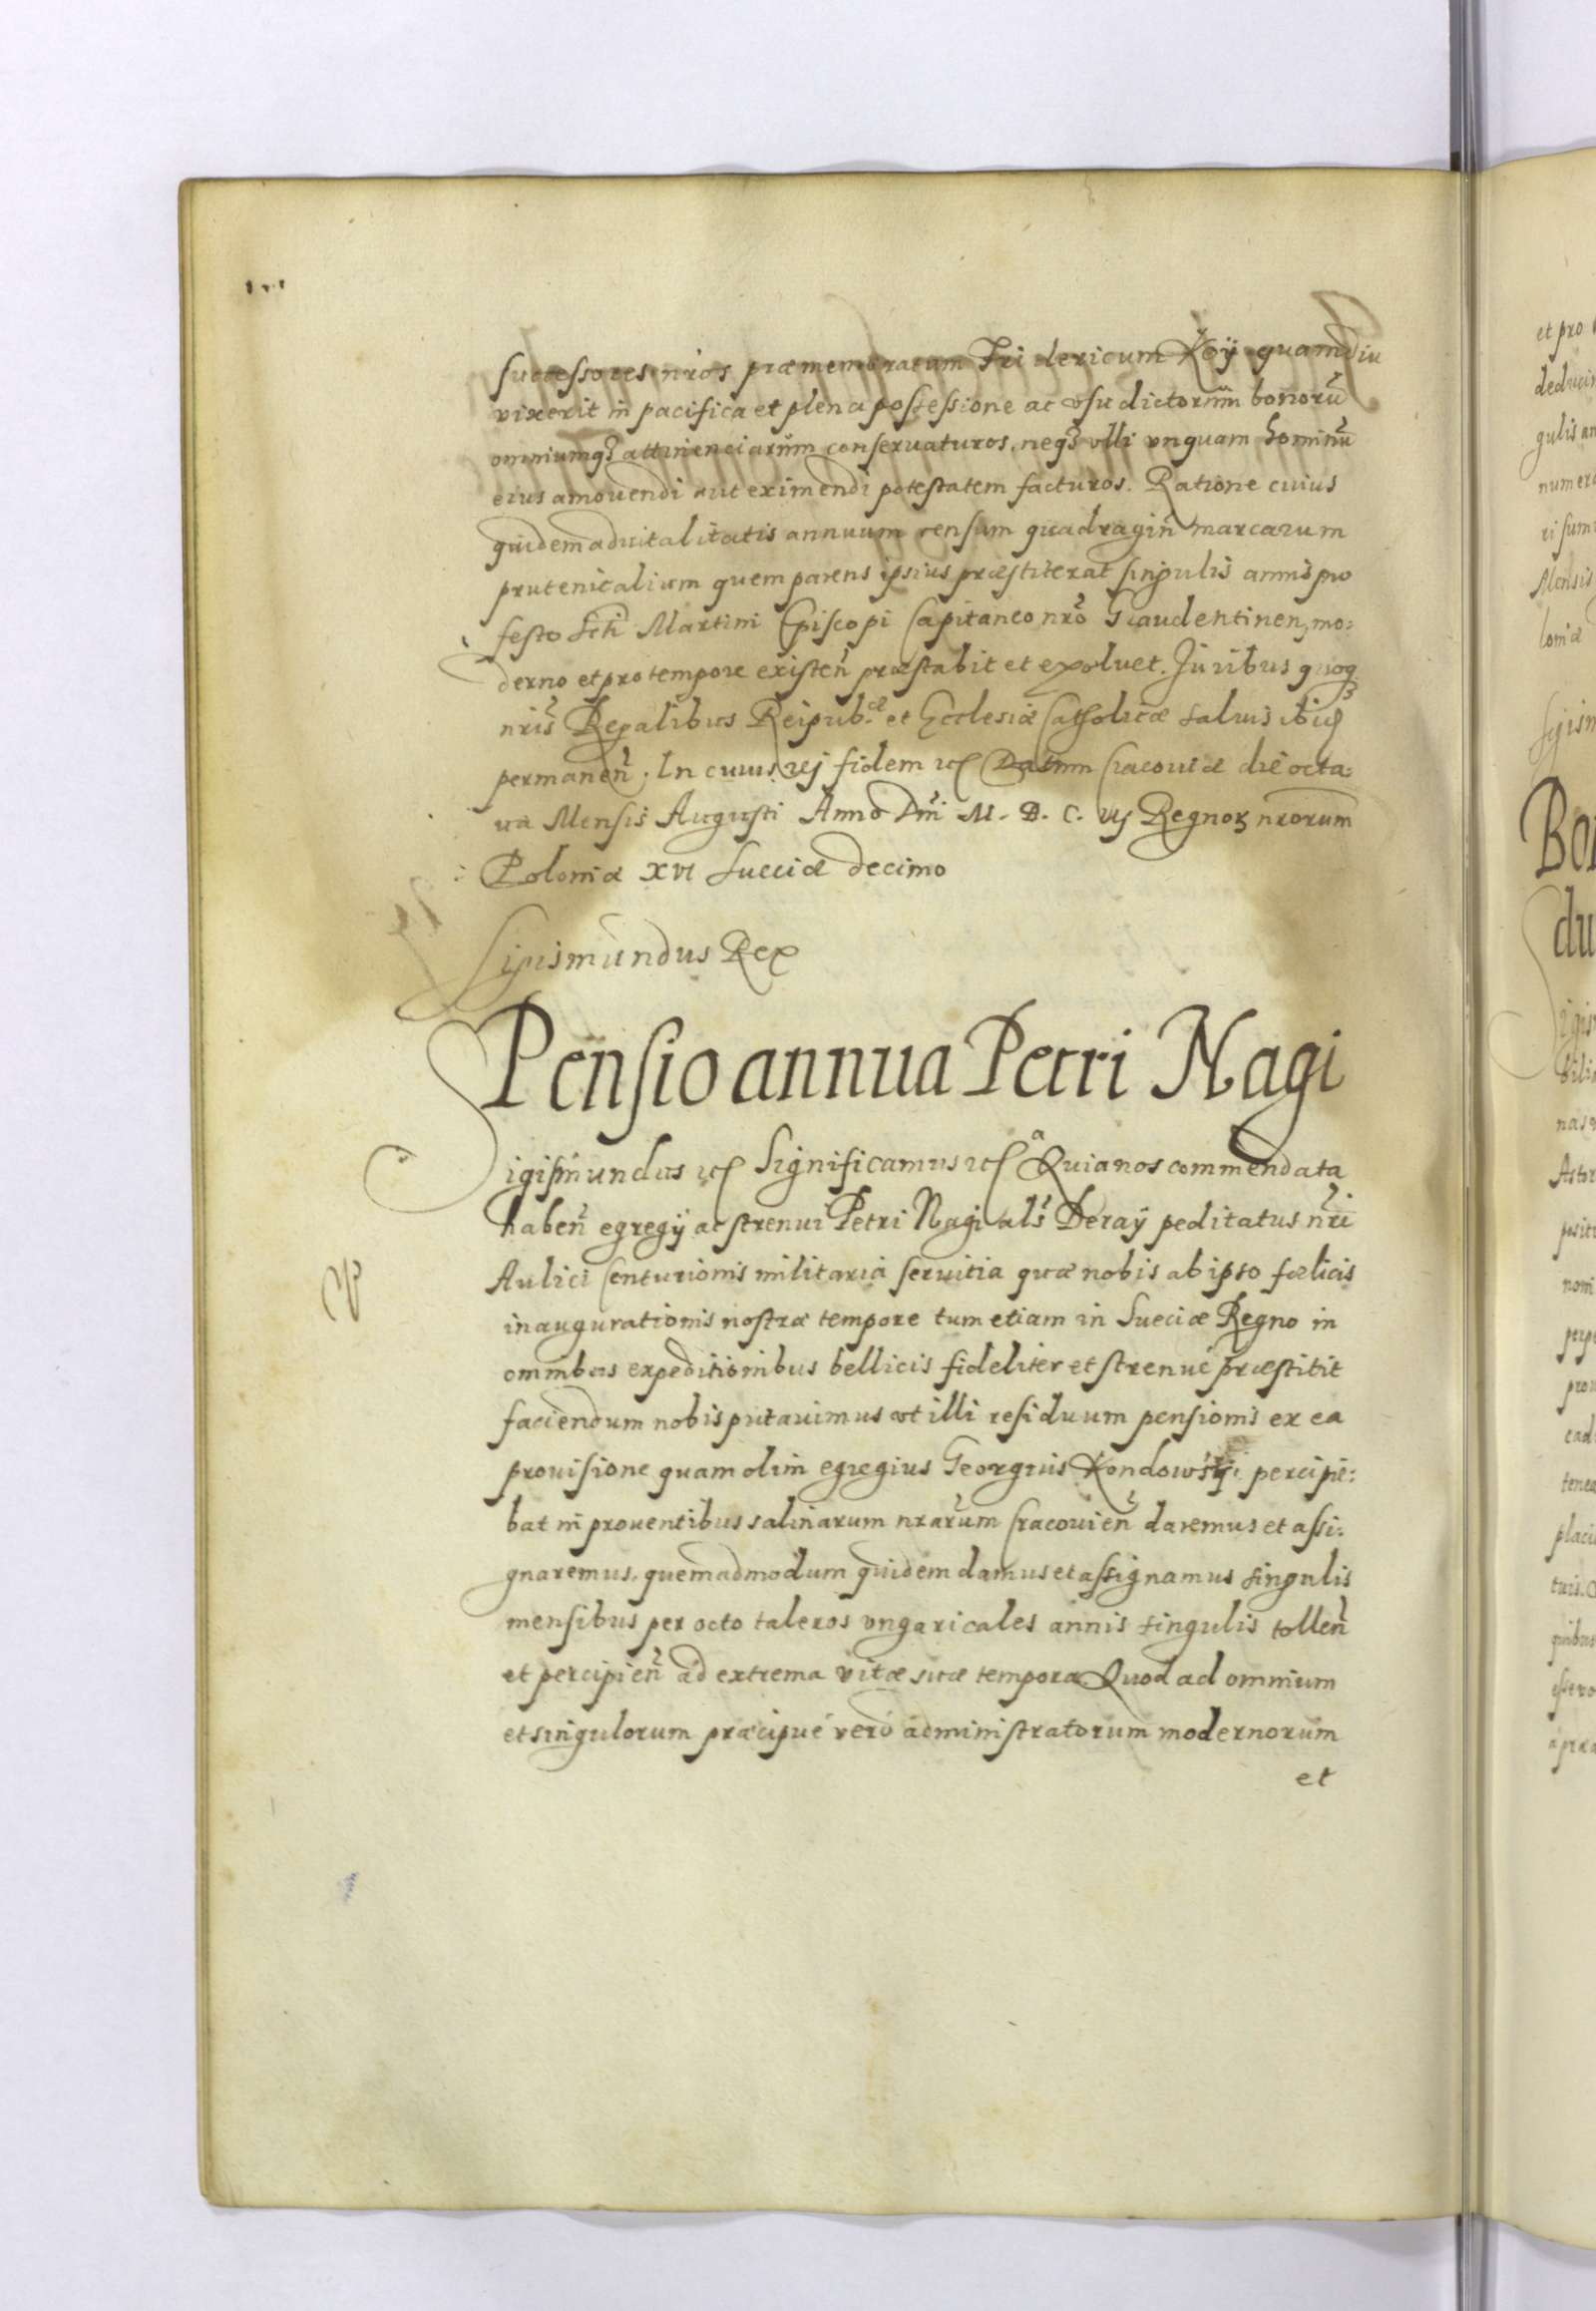 successores nros præmemoratum Fridericum Koÿ quamdiu
vixerit in pacifica et plena possessione ac vsu dictorum bonorũ
omniumqȝ attinenciarum conseruaturos, neqȝ vlli vnquam hominũ
eius amouendi aut eximendi potestatem facturos. Ratione cuius
quidem aduitalitatis annuum censum quadragiñ marcarum
prutenicalium quem parens ipsius præstiterat singulis annis pro
festo Scti Martini Episcopi Capitaneo nro Graudentinen, mo:
derno et pro tempore existeñ præstabit et exoluet. Juribus quoqȝ
nris Regalibus Reipub.cæ et Ecclesiæ Catholicæ saluis ibidȝ
permaneñ. In cuius rej fidem etc Datum Cracouiæ die octa:
ua Mensis Augusti Anno Dni M. D. C. iij Regnoȝ nrorum
Poloniæ XVI Sueciæ decimo
Sigismundus Rex
Pensio annua Petri Nagi
Sigismundus etc Significamus etc Quia nos commendata
habeñ egregij ac strenui Petri Nagi als Deraÿ peditatus nri
Aulici Centurionis militaria seruitia quæ nobis ab ipso fœlicis
inaugurationis nostræ tempore tum etiam in Sueciæ Regno in
omnibus expeditionibus bellicis fideliter et strenué præstitit
faciendum nobis putauimus vt illi residuum pensionis ex ea
prouisione quam olim egregius Georgius Kondowskj percipie:
bat in prouentibus salinarum nrarum Cracouieñ daremus et assi:
gnaremus, quemadmodum quidem damus et assignamus singulis
mensibus per octo taleros vngaricales annis singulis tolleñ
et percipieñ ad extrema vitæ suæ tempora. Quod ad omnium
et singulorum præcipué veró administratorum modernorum
et